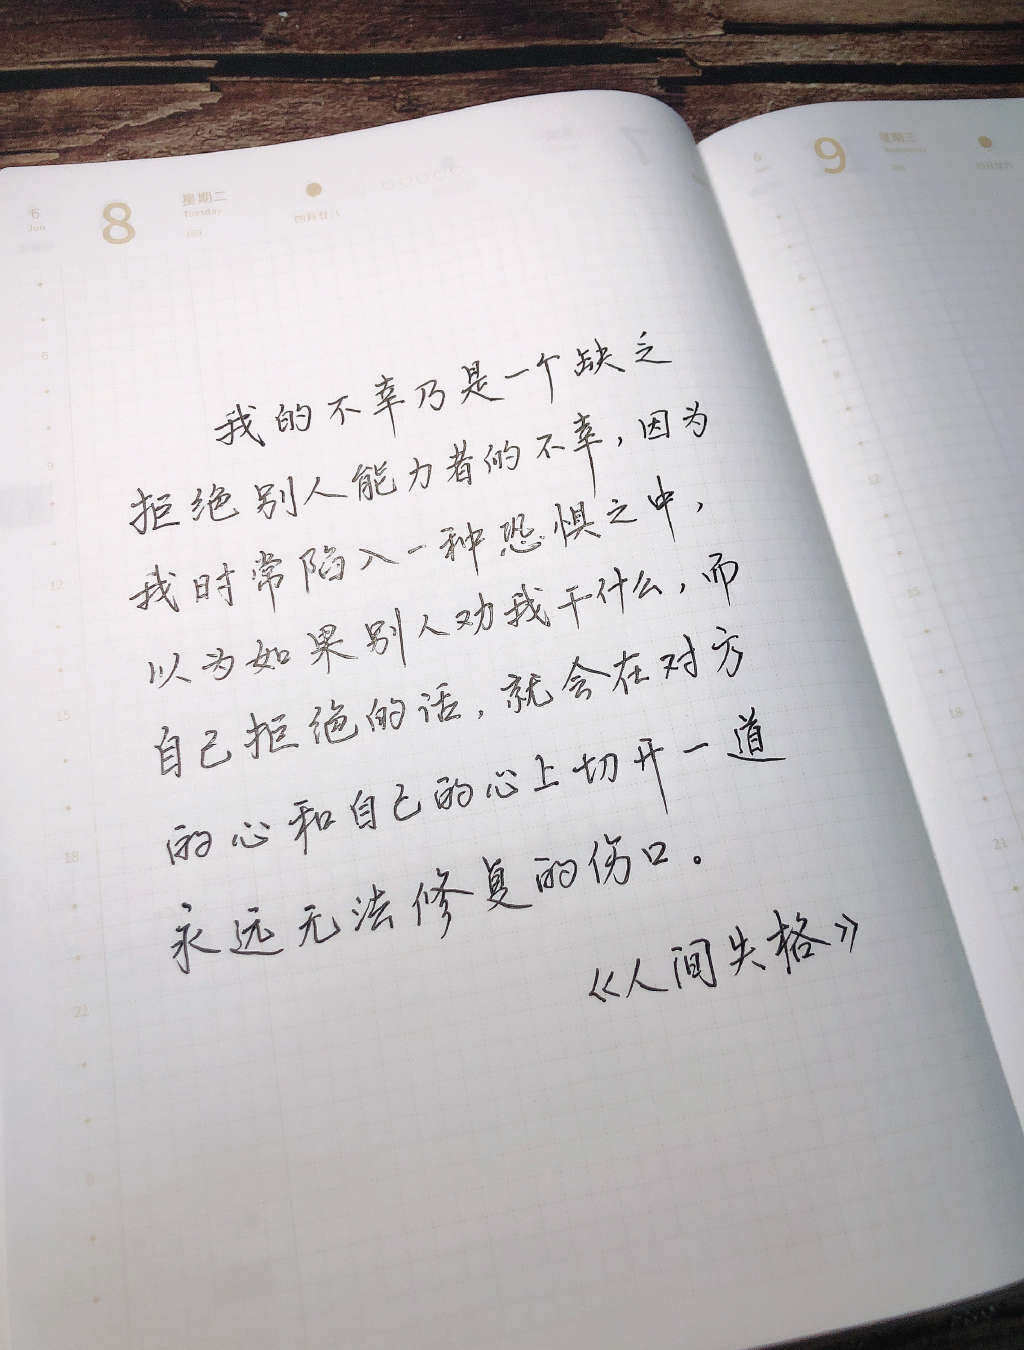 6
Jun
8
星期二
Tuesday
四月廿八
6
9
星期三
我的不幸乃是一个缺乏
拒绝别人能力者的不幸，因为
我时常陷入一种恐惧之中，
以为如果别人劝我干什么，而
自己拒绝的话，就会在对方
的心和自己的心上切开一道
永远无法修复的伤口。
《人间失格》
6
9
12
15
18
21
12
15
18
21